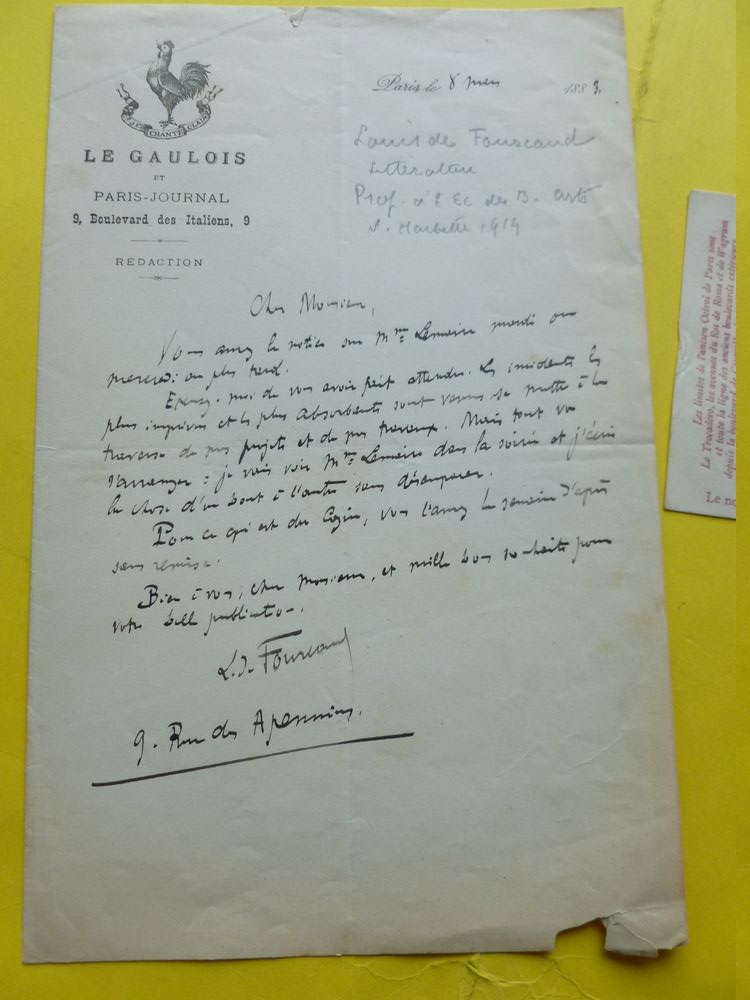 JE CHANTE CLAIR
LE GAULOIS
ET
PARIS-JOURNAL
9, Boulevard des Italiens, 9
RÉDACTION
Paris le 8 188 3.
Louis de Fourcaud
Prof. à l' Ec des B. arts
1914
Cher Monsieur,
Vous aurez la notice sur Mme Lemaire mardi ou
mercredi au plus tard.
Excusez-moi de vous avoir fait attendre. Les incidents les
plus imprévus et les plus absorbants sont venus se mettre à la
traverse de mes projets et de mes travaux. Mais tout va
s'arranger : je vais voir Mme Lemaire dans la soirée et j'écris
la chose d'un bout à l'autre sans désemparer.
Pour ce qui est du Cazin, vous l'aurez la semaine d'après
sans remise.
Bien à vous, cher Monsieur, et mille bons souhaits pour
votre belle publication.
L. de Fourcaud
9. Rue des Apennins.
Les limites de l'ancien Octroi de Paris sont
Le Trocadéro, les avenues du Roi de Rome et de Wagram
et toute la ligne des anciens boulevards extérieurs
depuis le boulevard de
Le no